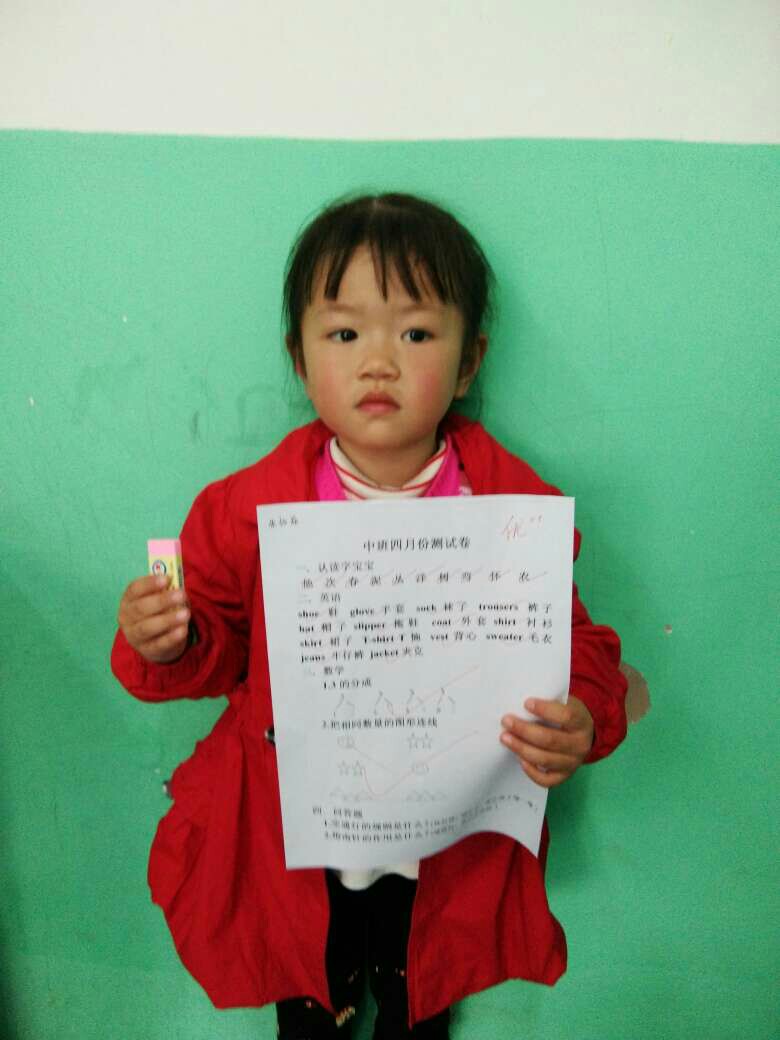 优
中班四月份测试卷
一、认读字宝宝
他 次 春 泥 丛 洋 树 当 怀 农
二、英语
shoe 鞋 glove 手套 sock 袜子 trousers 裤子
hat 帽子 slipper 拖鞋 coat 外套 shirt 衬衫
skirt 裙子 T-shirt T恤 vest 背心 sweater 毛衣
jeans 牛仔裤 jacket 夹克
三、数学
1.3的分成
2.把相同数量的图形连线
四、问答题
1.交通行的规则是什么？
2.指南针的作用是什么？